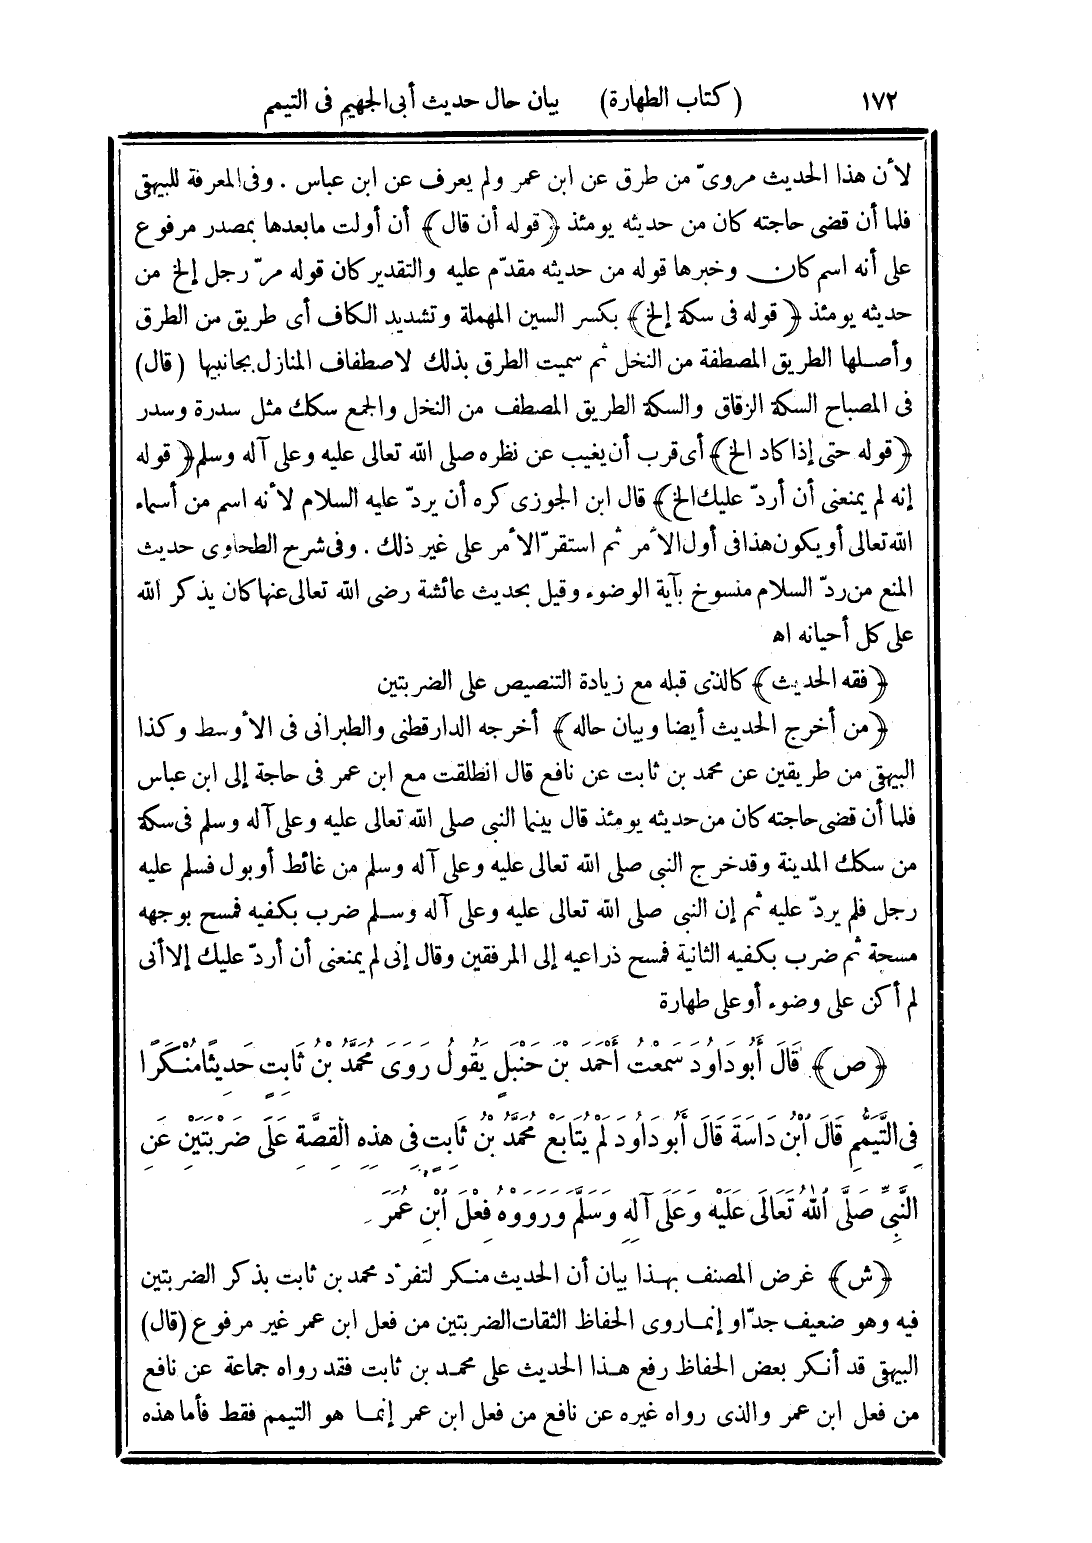 ١٧٢ (كتاب الطهارة) بيان حال حديث أبى الجهيم فى التيمم
لأن هذا الحديث مروىّ من طرق عن ابن عمر ولم يعرف عن ابن عباس . وفى المعرفة للبيهقى
فلما أن قضى حاجته كان من حديثه يومئذ ﴿قوله أن قال﴾ أن أولت ما بعدها بمصدر مرفوع
على أنه اسم كان وخبرها قوله من حديثه مقدّم عليه والتقدير كان قوله مرّ رجل إلخ من
حديثه يومئذ ﴿قوله فى سكة إلخ﴾ بكسر السين المهملة وتشديد الكاف أى طريق من الطرق
وأصلها الطريق المصطفة من النخل ثم سميت الطرق بذلك لاصطفاف المنازل بجانبيها (قال)
فى المصباح السكة الزقاق والسكة الطريق المصطف من النخل والجمع سكك مثل سدرة وسدر
﴿قوله حتى إذا كاد الخ﴾ أى قرب أن يغيب عن نظره صلى الله تعالى عليه وعلى آله وسلم ﴿قوله
إنه لم يمنعنى أن أردّ عليك الخ﴾ قال ابن الجوزى كره أن يردّ عليه السلام لأنه اسم من أسماء
الله تعالى أو يكون هذا فى أول الأمر ثم استقرّ الأمر على غير ذلك . وفى شرح الطحاوى حديث
المنع من ردّ السلام منسوخ بآية الوضوء وقيل بحديث عائشة رضى الله تعالى عنها كان يذكر الله
على كل أحيانه اه
﴿فقه الحديث﴾ كالذى قبله مع زيادة التنصيص على الضربتين
﴿من أخرج الحديث أيضا وبيان حاله﴾ أخرجه الدارقطنى والطبرانى فى الأوسط وكذا
البيهقى من طريقين عن محمد بن ثابت عن نافع قال انطلقت مع ابن عمر فى حاجة إلى ابن عباس
فلما أن قضى حاجته كان من حديثه يومئذ قال بينما النبى صلى الله تعالى عليه وعلى آله وسلم فى سكة
من سكك المدينة وقد خرج النبى صلى الله تعالى عليه وعلى آله وسلم من غائط أو بول فسلم عليه
رجل فلم يردّ عليه ثم إن النبى صلى الله تعالى عليه وعلى آله وسلم ضرب بكفيه فمسح بوجهه
مسحة ثم ضرب بكفيه الثانية فمسح ذراعيه إلى المرفقين وقال إنى لم يمنعنى أن أردّ عليك إلا أنى
لم أكن على وضوء أو على طهارة
﴿ص﴾ قَالَ أَبُو دَاوُدَ سَمِعْتُ أَحْمَدَ بْنَ حَنْبَلٍ يَقُولُ رَوَى مُحَمَّدُ بْنُ ثَابِتٍ حَدِيثًا مُنْكَرًا
فِى التَّيَمُّمِ قَالَ ابْنُ دَاسَةَ قَالَ أَبُو دَاوُدَ لَمْ يُتَابَعْ مُحَمَّدُ بْنُ ثَابِتٍ فِى هذِهِ الْقِصَّةِ عَلَى ضَرْبَتَيْنِ عَنِ
النَّبِىِّ صَلَّى اللهُ تَعَالَى عَلَيْهِ وَعَلَى آلِهِ وَسَلَّمَ وَرَوَوْهُ فِعْلَ ابْنِ عُمَرَ
﴿ش﴾ غرض المصنف بهذا بيان أن الحديث منكر لتفرّد محمد بن ثابت بذكر الضربتين
فيه وهو ضعيف جدّا وإنما روى الحفاظ الثقات الضربتين من فعل ابن عمر غير مرفوع (قال)
البيهقى قد أنكر بعض الحفاظ رفع هذا الحديث على محمد بن ثابت فقد رواه جماعة عن نافع
من فعل ابن عمر والذى رواه غيره عن نافع من فعل ابن عمر إنما هو التيمم فقط فأما هذه